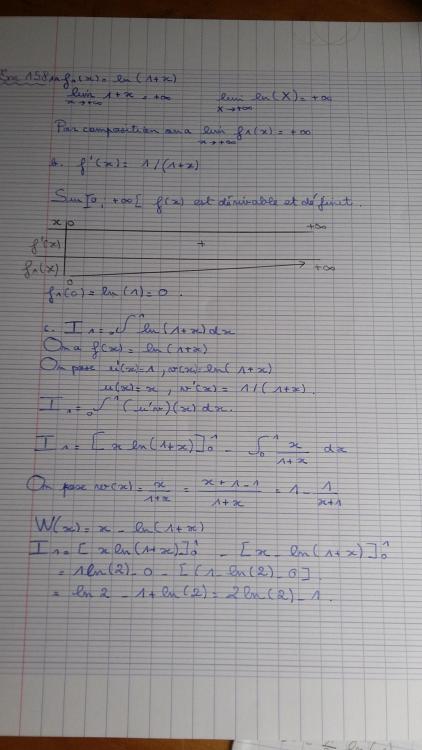 Sur 158 a. f₁(x) = ln(1+x)
lim 1+x = +∞ lim ln(X) = +∞
x→+∞ X→+∞
Par composition on a lim f₁(x) = +∞
x→+∞
b. f'(x) = 1/(1+x)
Sur ]0, +∞[ f(x) est dérivable et définit.
x 0 +∞
f'(x) +
f₁(x) 0 +∞
f₁(0) = ln(1) = 0.
c. I₁ = ₀∫¹ ln(1+x) dx
On a f(x) = ln(1+x)
On pose u'(x) = 1, v(x) = ln(1+x)
u(x) = x, v'(x) = 1/(1+x).
I₁ = ₀∫¹ (u'v)(x) dx.
I₁ = [x ln(1+x)]₀¹ - ∫₀¹ x/(1+x) dx
On pose w(x) = x/(1+x) = (x+1-1)/(1+x) = 1 - 1/(x+1)
W(x) = x - ln(1+x)
I₁ = [x ln(1+x)]₀¹ - [x - ln(1+x)]₀¹
= 1 ln(2) - 0 - [(1 - ln(2) - 0].
= ln 2 - 1 + ln(2) = 2 ln(2) - 1.